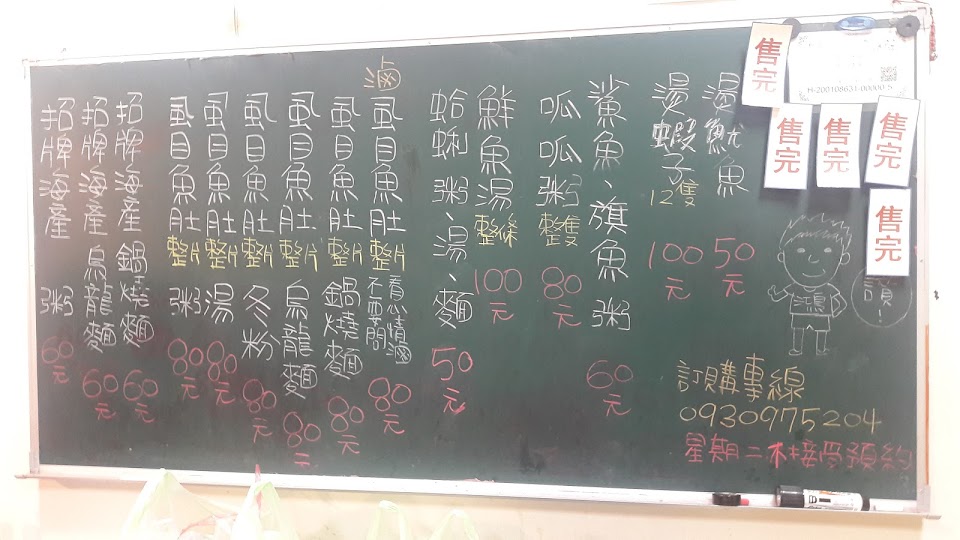 售完
售完
售完
售完
售完
H-200108631-00000-5
湯魷魚 50元
湯蝦子 12隻 100元
鯊魚、旗魚粥 60元
呱呱粥 整隻 80元
鮮魚湯 整條 100元
蛤蜊粥、湯、麵 50元
滷虱目魚肚 整片 看心情滷 不要問 80元
虱目魚肚 整片 鍋燒麵 80元
虱目魚肚 整片 烏龍麵 80元
虱目魚肚 整片 冬粉 80元
虱目魚肚 整片 湯 80元
虱目魚肚 整片 粥 80元
招牌海產 鍋燒麵 60元
招牌海產 烏龍麵 60元
招牌海產 粥 60元
讚!
訂購專線
0930975204
星期二不接受預約